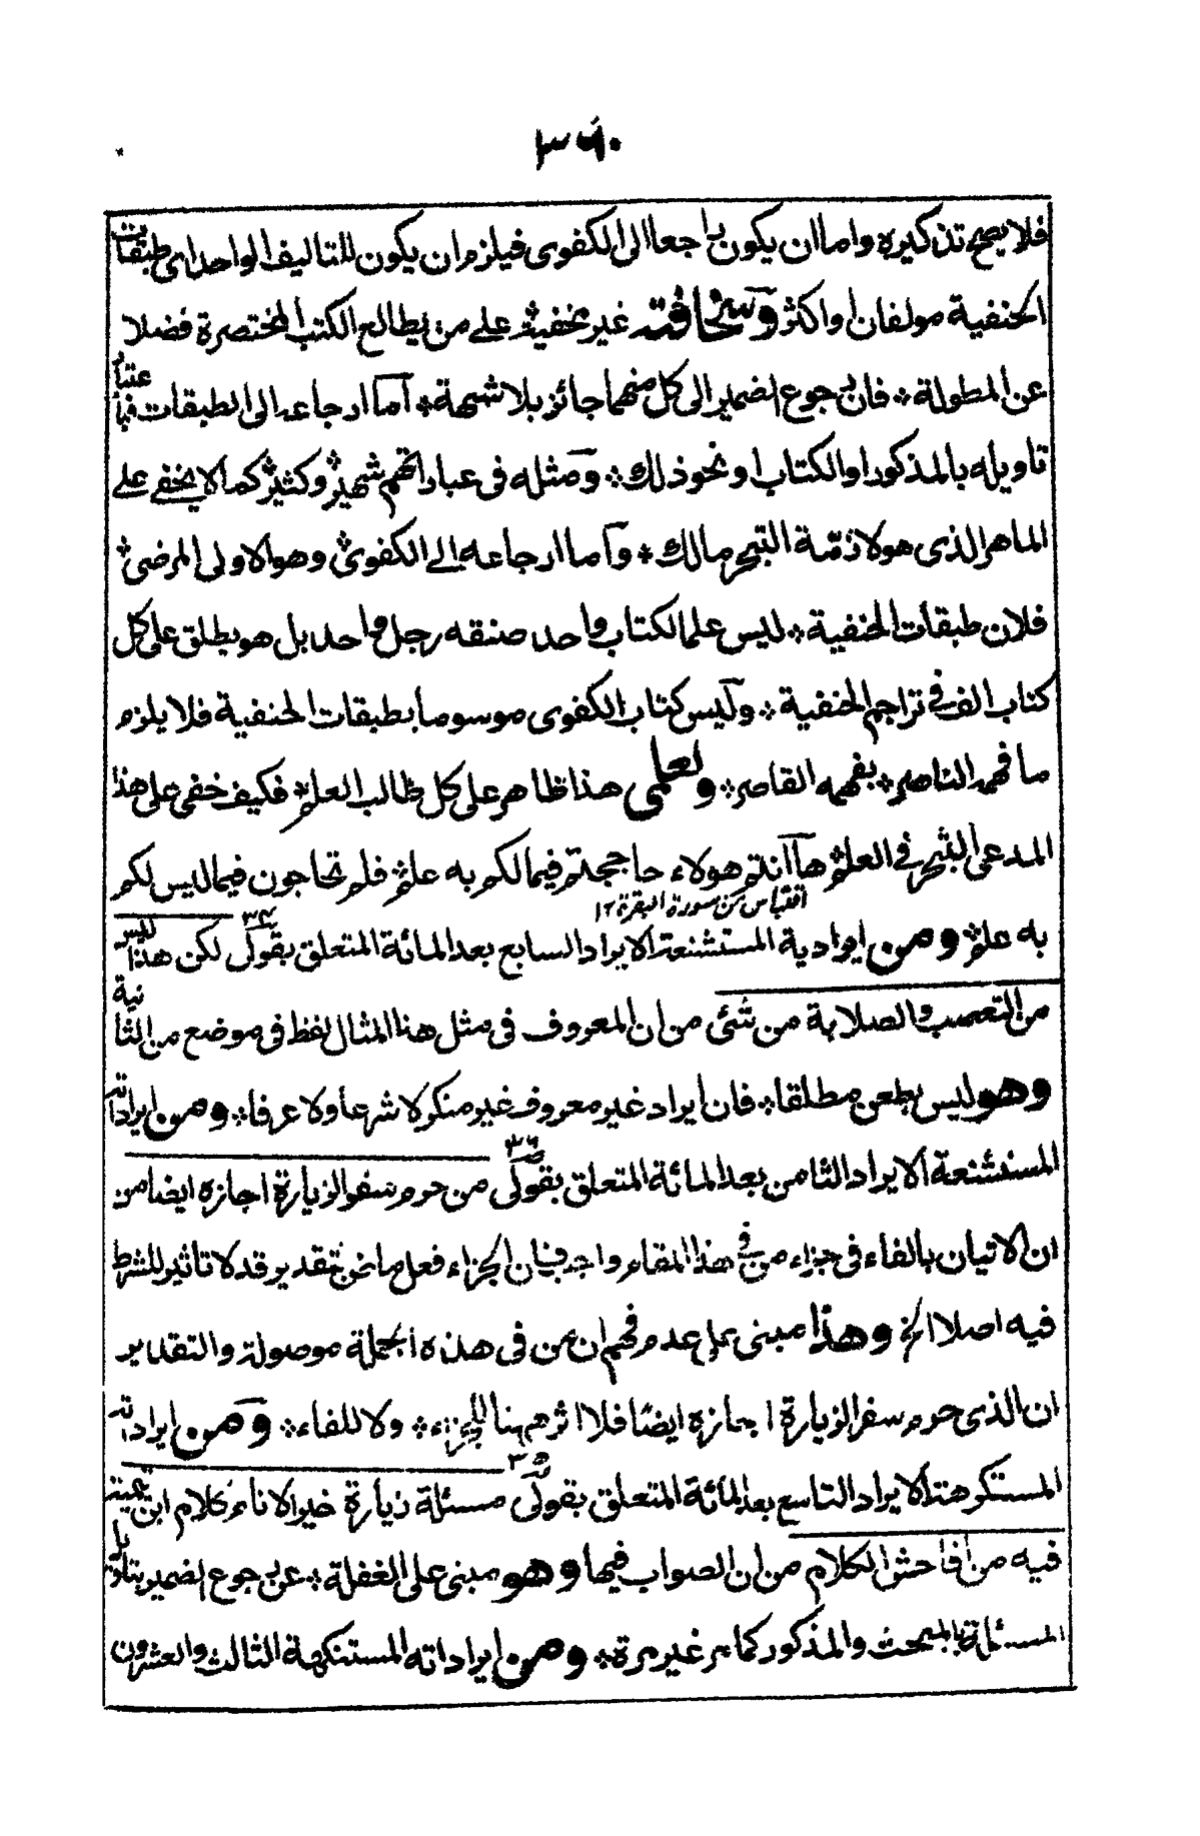 ٣٦٠
فلا يصح تذكيره واما ان يكون راجعا الى الكفوى فيلزم ان يكون للتاليف الواحد اى طبقات
الحنفية مولفان او اكثر وسخافته غير مخفية على من يطالع الكتب المختصرة فضلا
عن المطولة * فان رجوع الضمير الى كل منهما جائز بلا شبهة * اما ارجاعه الى الطبقات فباعتبار
تاويله بالمذكور او الكتاب او نحو ذلك * ومثله فى عباراتهم شهير * وكثير * كما لا يخفى على
الماهر الذى هو لازمة التبحر مالك * واما ارجاعه الى الكفوى * وهو الاولى المرضى *
فلان طبقات الحنفية * ليس علما لكتاب واحد صنفه رجل واحد بل هو يطلق على كل
كتاب الف فى تراجم الحنفية * وليس كتاب الكفوى موسوما بطبقات الحنفية فلا يلزم
ما فهمه الناصر * بفهمه القاصر * ولعلمى هذا ظاهر على كل طالب العلم * فكيف خفى على هذا
المدعى التبحر فى العلم * ها انتم هولاء حاججتم فيما لكم به علم * فلم تحاجون فيما ليس لكم
اقتباس من سورة البقرة ١٢
به علم * ومن ايرادية المستشنعة الايراد السابع بعد المائة المتعلق بقولى لكن هذا ليس
من التعصب والصلابة من شئ من ان المعروف فى مثل هذا المثال لفظ فى موضع من الثانية
وهو ليس بطعن مطلقا * فان ايراد غير معروف غير منكر لا شرعا ولا عرفا * ومن ايراداته
المستشنعة الايراد الثامن بعد المائة المتعلق بقولى من حرم سفر الزيارة اجازه ايضا من
ان الاتيان بالفاء فى جزاء من فى هذا المقام واجب فان الجزاء فعل ماض بتقدير قد لا تاثير للشرط
فيه اصلا الخ وهذا مبنى على عدم فهم ان من فى هذه الجملة موصولة والتقدير
ان الذى حرم سفر الزيارة اجازه ايضا فلا اثر ههنا للجزاء * ولا للفاء * ومن ايراداته
المستكرهة الايراد التاسع بعد المائة المتعلق بقولى مسئلة زيارة خير الانام كلام ابن تيمية
فيه من افاحش الكلام من ان الصواب فيها وهو مبنى على الغفلة * عن رجوع الضمير بتاويل
المسئلة بالمبحث والمذكور كما مر غير مرة * ومن ايراداته المستنكهة الثالث والعشرون